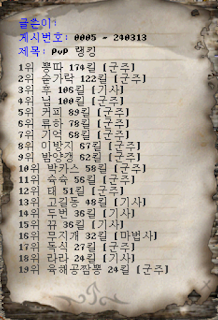 글쓴이:
게시번호: 0005 - 240313
제목: PvP 랭킹
1위 뽕따 174킬 [군주]
2위 숟가락 122킬 [군주]
3위 후 106킬 [기사]
4위 님 100킬 [군주]
5위 커피 89킬 [군주]
6위 록하 78킬 [군주]
7위 기억 68킬 [군주]
8위 이방지 67킬 [군주]
9위 밤양갱 62킬 [군주]
10위 박카스 58킬 [군주]
11위 슉슉 56킬 [군주]
12위 태 51킬 [군주]
13위 고길동 48킬 [기사]
14위 두번 36킬 [기사]
15위 뀨 36킬 [기사]
16위 무지개 32킬 [마법사]
17위 독식 27킬 [군주]
18위 라라 24킬 [기사]
19위 육해공짬뽕 24킬 [군주]